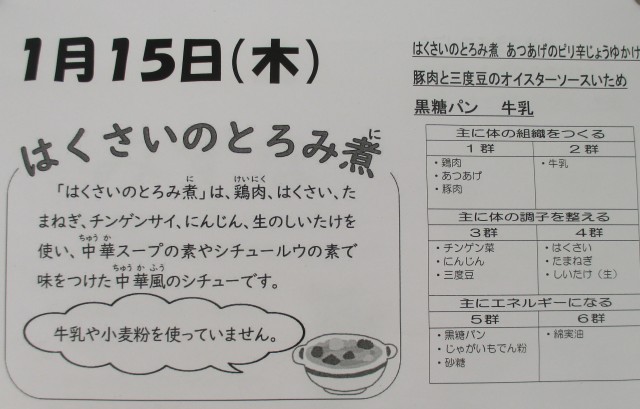 1月15日(木)
はくさいのとろみ煮
「はくさいのとろみ煮」は、鶏肉、はくさい、た
まねぎ、チンゲンサイ、にんじん、生のしいたけを
使い、中華スープの素やシチュールウの素で
味をつけた中華風のシチューです。
牛乳や小麦粉を使っていません。
はくさいのとろみ煮 あつあげのピリ辛じょうゆかけ
豚肉と三度豆のオイスターソースいため
黒糖パン 牛乳
主に体の組織をつくる
1群 2群
・鶏肉 ・牛乳
・あつあげ
・豚肉
主に体の調子を整える
3群 4群
・チンゲン菜 ・はくさい
・にんじん ・たまねぎ
・三度豆 ・しいたけ(生)
主にエネルギーになる
5群 6群
・黒糖パン ・綿実油
・じゃがいもでん粉
・砂糖